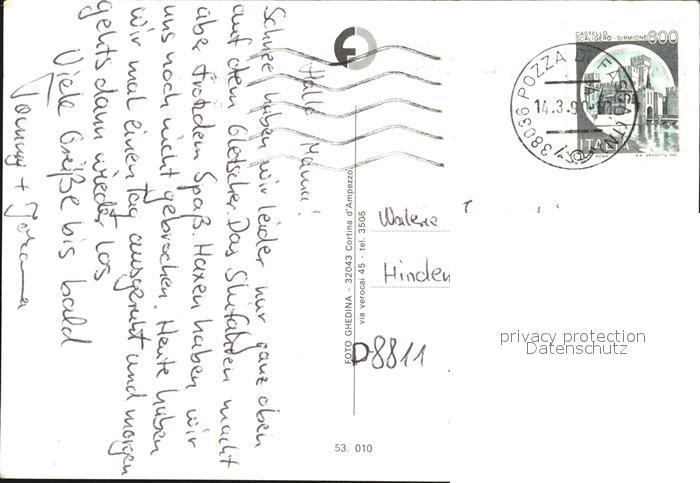 Hallo Mama!
Schnee haben wir leider nur ganz oben
auf dem Gletscher. Das Skifahren macht
aber trotzdem Spaß. Haxen haben wir
uns noch nicht gebrochen. Heute haben
wir mal einen Tag ausgeruht und morgen
gehts dann wieder los
Viele Grüße bis bald
Tommy + Johanna
FOTO GHEDINA - 32043 Cortina d'Ampezzo
via verocai 45 - tel. 3505
53. 010
CASTELLO
SCALIGERO - SIRMIONE
800
ITALIA
ROMA
38036 POZZA DI FASSA (TN)
14.3.90
Hinden
D-8811
privacy protection
Datenschutz